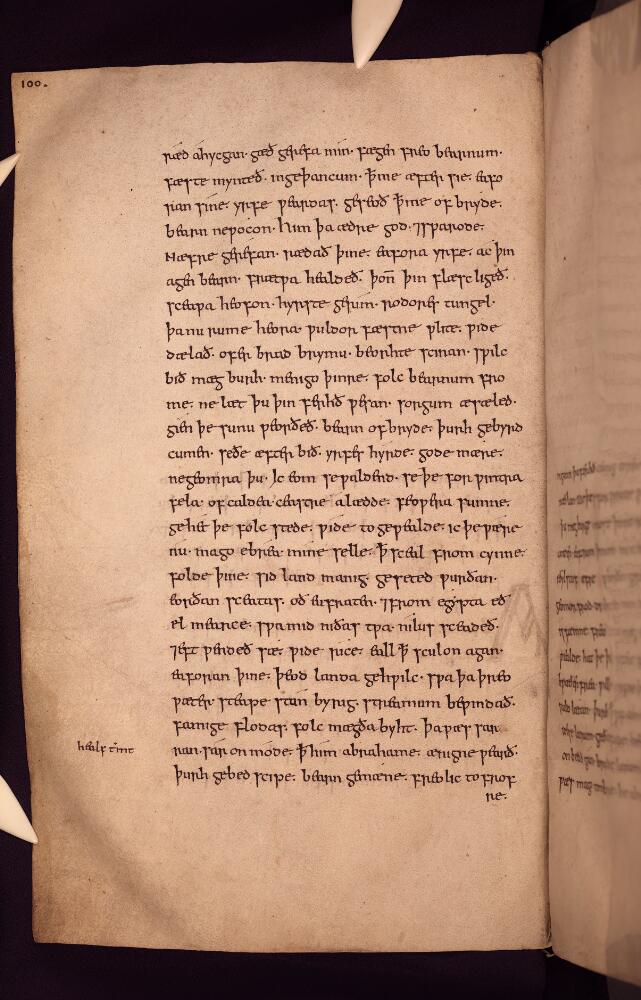 ræd ahycgan· gæð gerefa min· fægen freo bearnum·
fæste mynteð· ingeþancum· ꝥ me æfter sie· eafo
ran sine· yrfe ƿeardas· geseoð ꝥ me of bryde·
bearn ne ƿocon· him þa ædre god· ⁊sƿarode·
Næfre gerefan· rædað þine· eafora yrfe· ac þin
agen bearn· frætƿa healdeð· þoñ þin flæsc ligeð·
sceaƿa heofon· hyrste gerim· rodores tungel·
þa nu rume heora· ƿuldor fæstne ƿlite· ƿide
dælað· ofer brad brymu· beorhte scinan· sƿilc
bið mæg burh· menigo þinre· folc bearnum fro
me· ne læt þu þin ferhð ƿesan· sorgum asæled·
gien þe sunu ƿeorðeð· bearn of bryde· þurh gebyrd
cumen· seðe æfter bið· yrfes hyrde· gode mære·
ne geomra þu· Ic eom se ƿaldend· se þe for ƿintra
fela· of caldea ceastre alædde· feoƿera sumne·
gehet þe folc stede· ƿide to geƿealde· ic þe ƿære
nu· mago ebrea· mine selle· ꝥ sceal from cynne·
folde þine· sid land manig· geseted ƿurðan·
eorðan sceatas· oð eufraten· ⁊from egypta eð
el mearce· sƿa mid niðas tƿa· nilus sceadeð·
⁊eft ƿendeð sæ· ƿide rice· eall ꝥ sculon agan·
eaforan þine· þeod landa gehƿilc· sƿa þa þreo
ƿæter· steape stan byrig· streamum beƿindað·
famige flodas· folc mægða byht· þa ƿæs sar
ran· sar on mode· ꝥ him abrahame· ænig ne ƿearð·
þurh gebed scipe· bearn gemæne· freolic to frof
re·